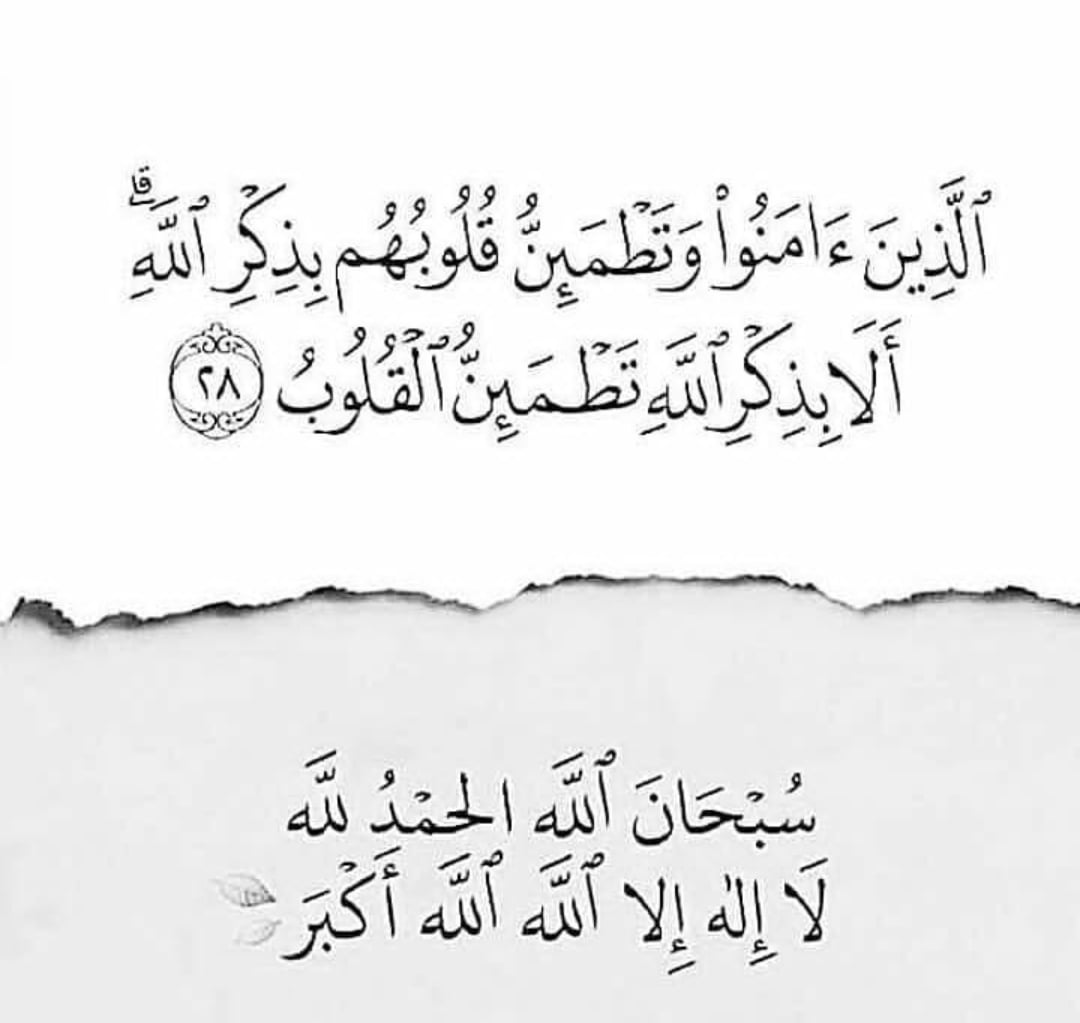 ٱلَّذِينَ ءَامَنُوا۟ وَتَطْمَئِنُّ قُلُوبُهُم بِذِكْرِ ٱللَّهِ ۗ
أَلَا بِذِكْرِ ٱللَّهِ تَطْمَئِنُّ ٱلْقُلُوبُ ٢٨
سُبْحَانَ ٱللَّه الحَمْدُ للَّه
لَا إِلٰه إِلا ٱللَّه ٱللَّه أَكْبَر